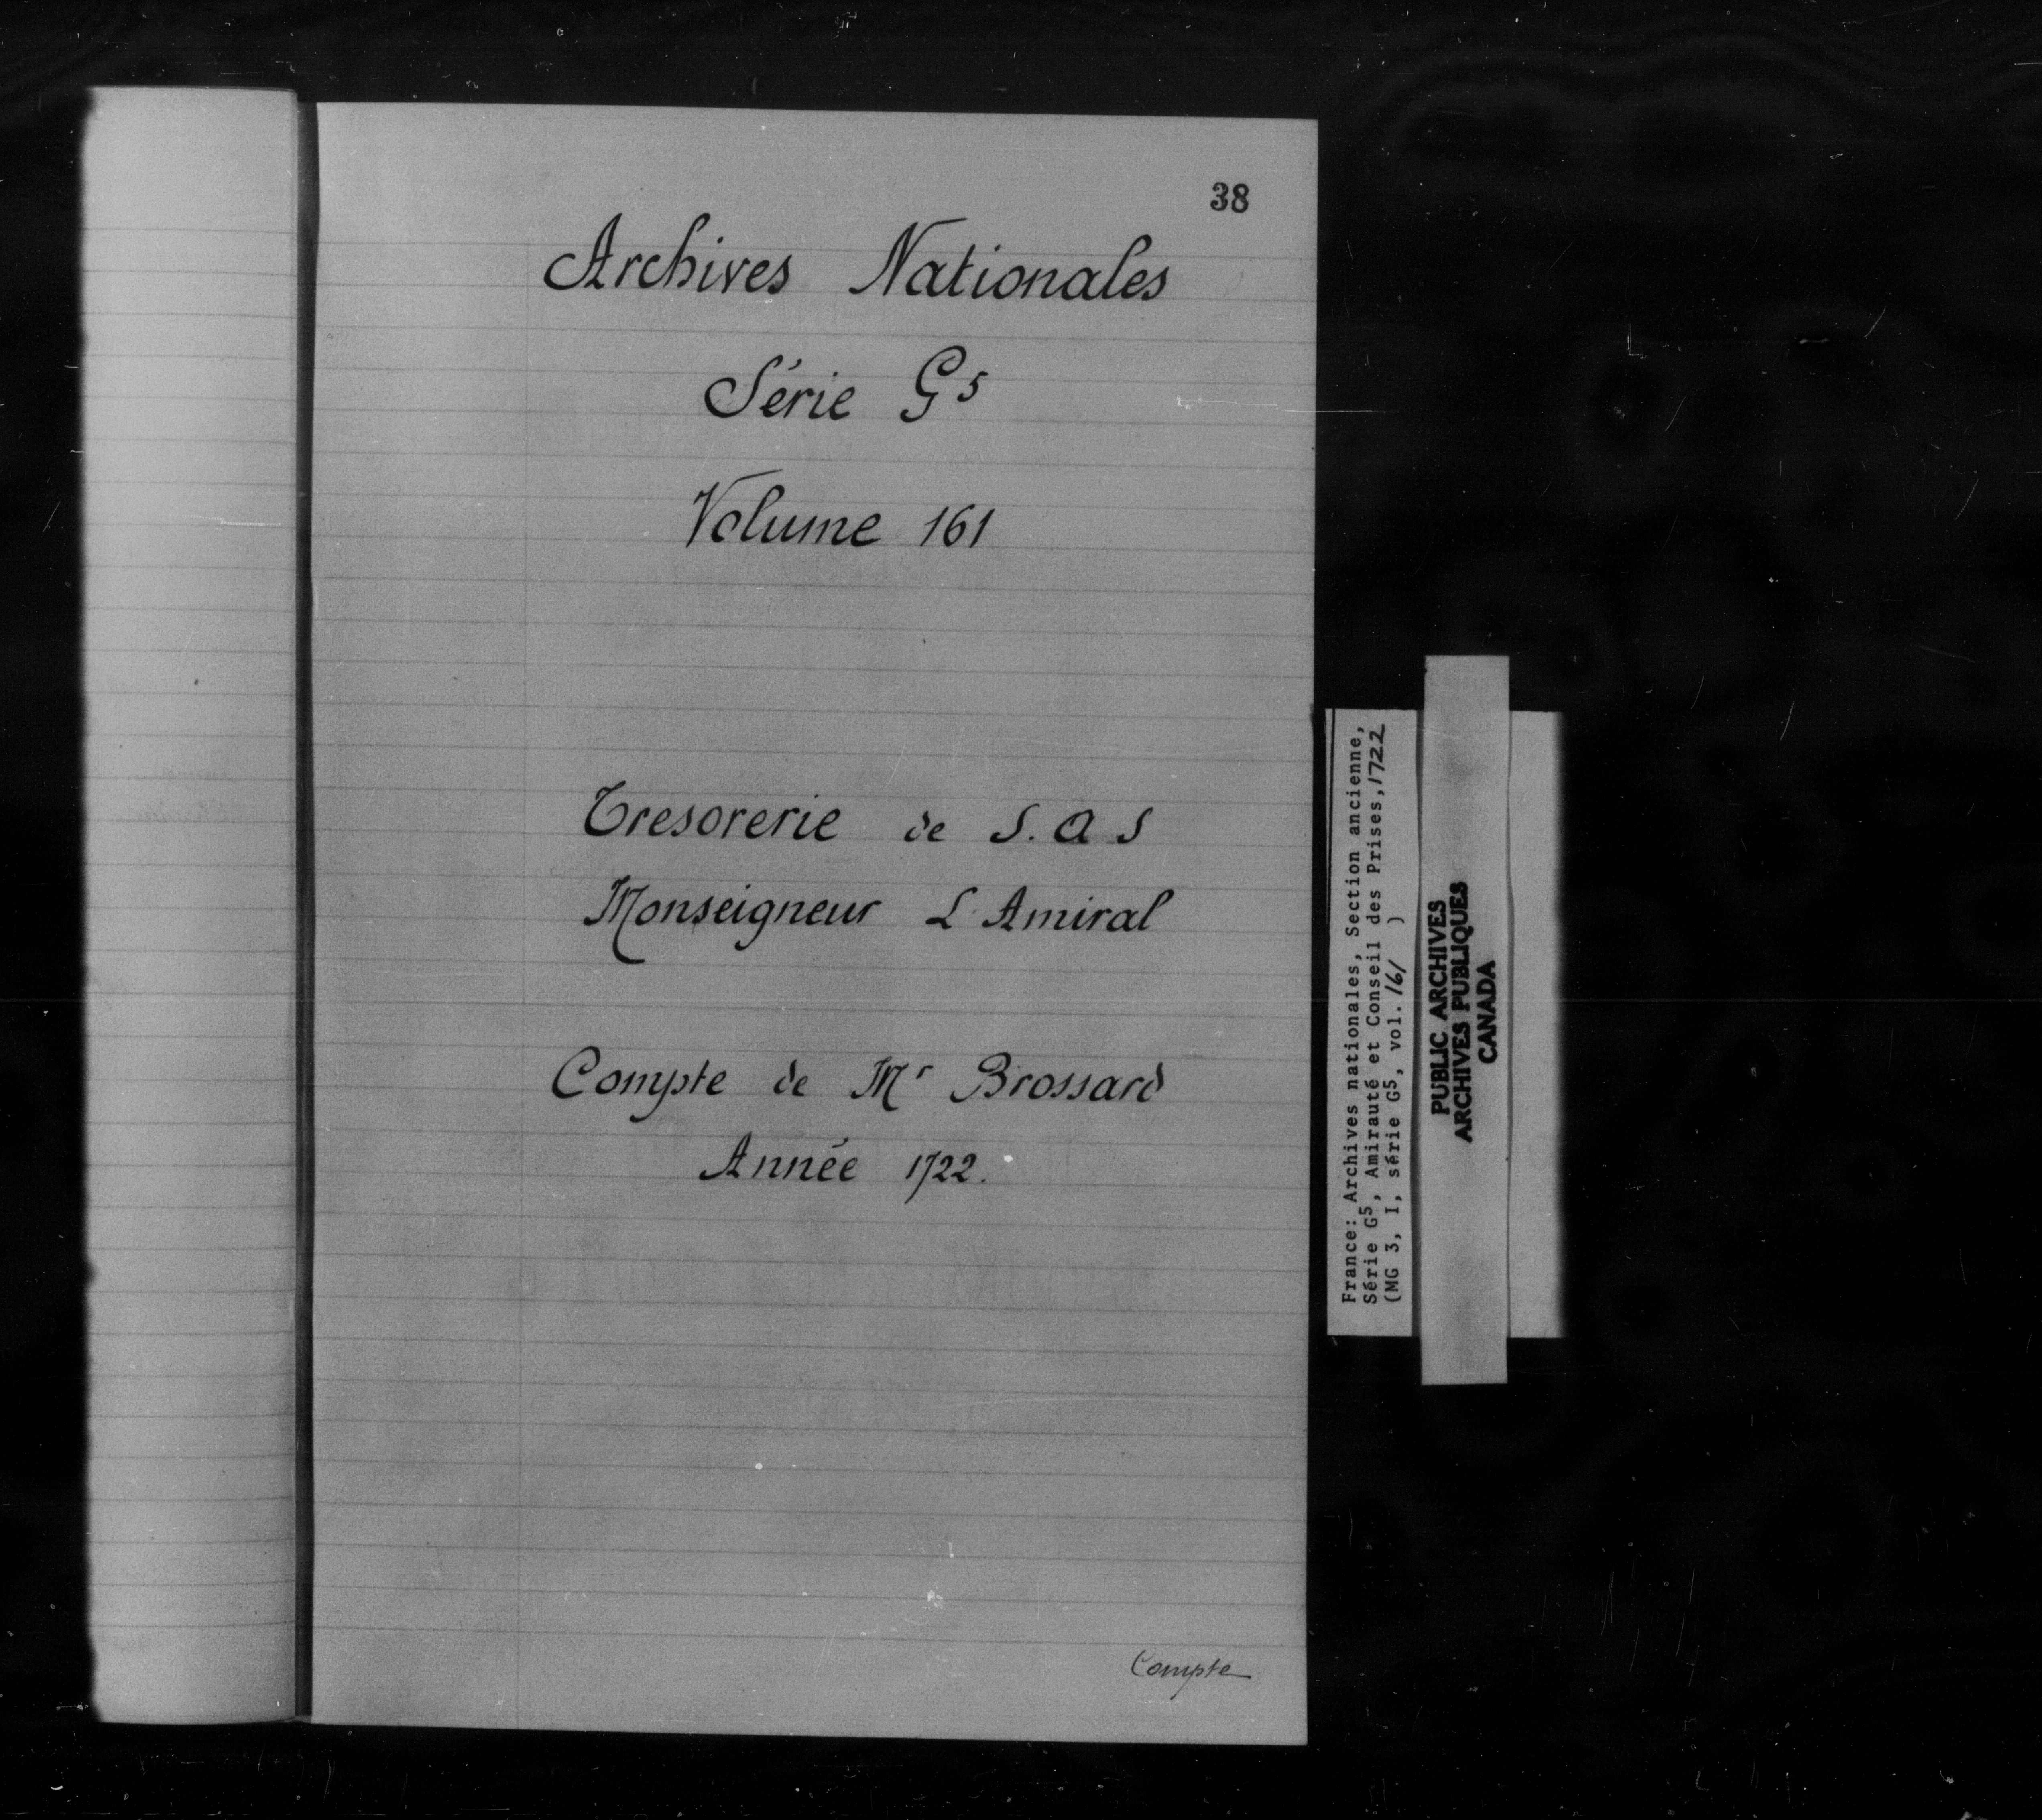 38
Archives Nationales
Série G5
Volume 161
Tresorerie de S. A S
Monseigneur L Amiral
Compte de Mr Brossard
Année 1722.
Compte
France: Archives nationales, Section ancienne,
Série G5, Amirauté et Conseil des Prises, 1722
(MG 3, I, série G5, vol. 161 )
PUBLIC ARCHIVES
ARCHIVES PUBLIQUES
CANADA